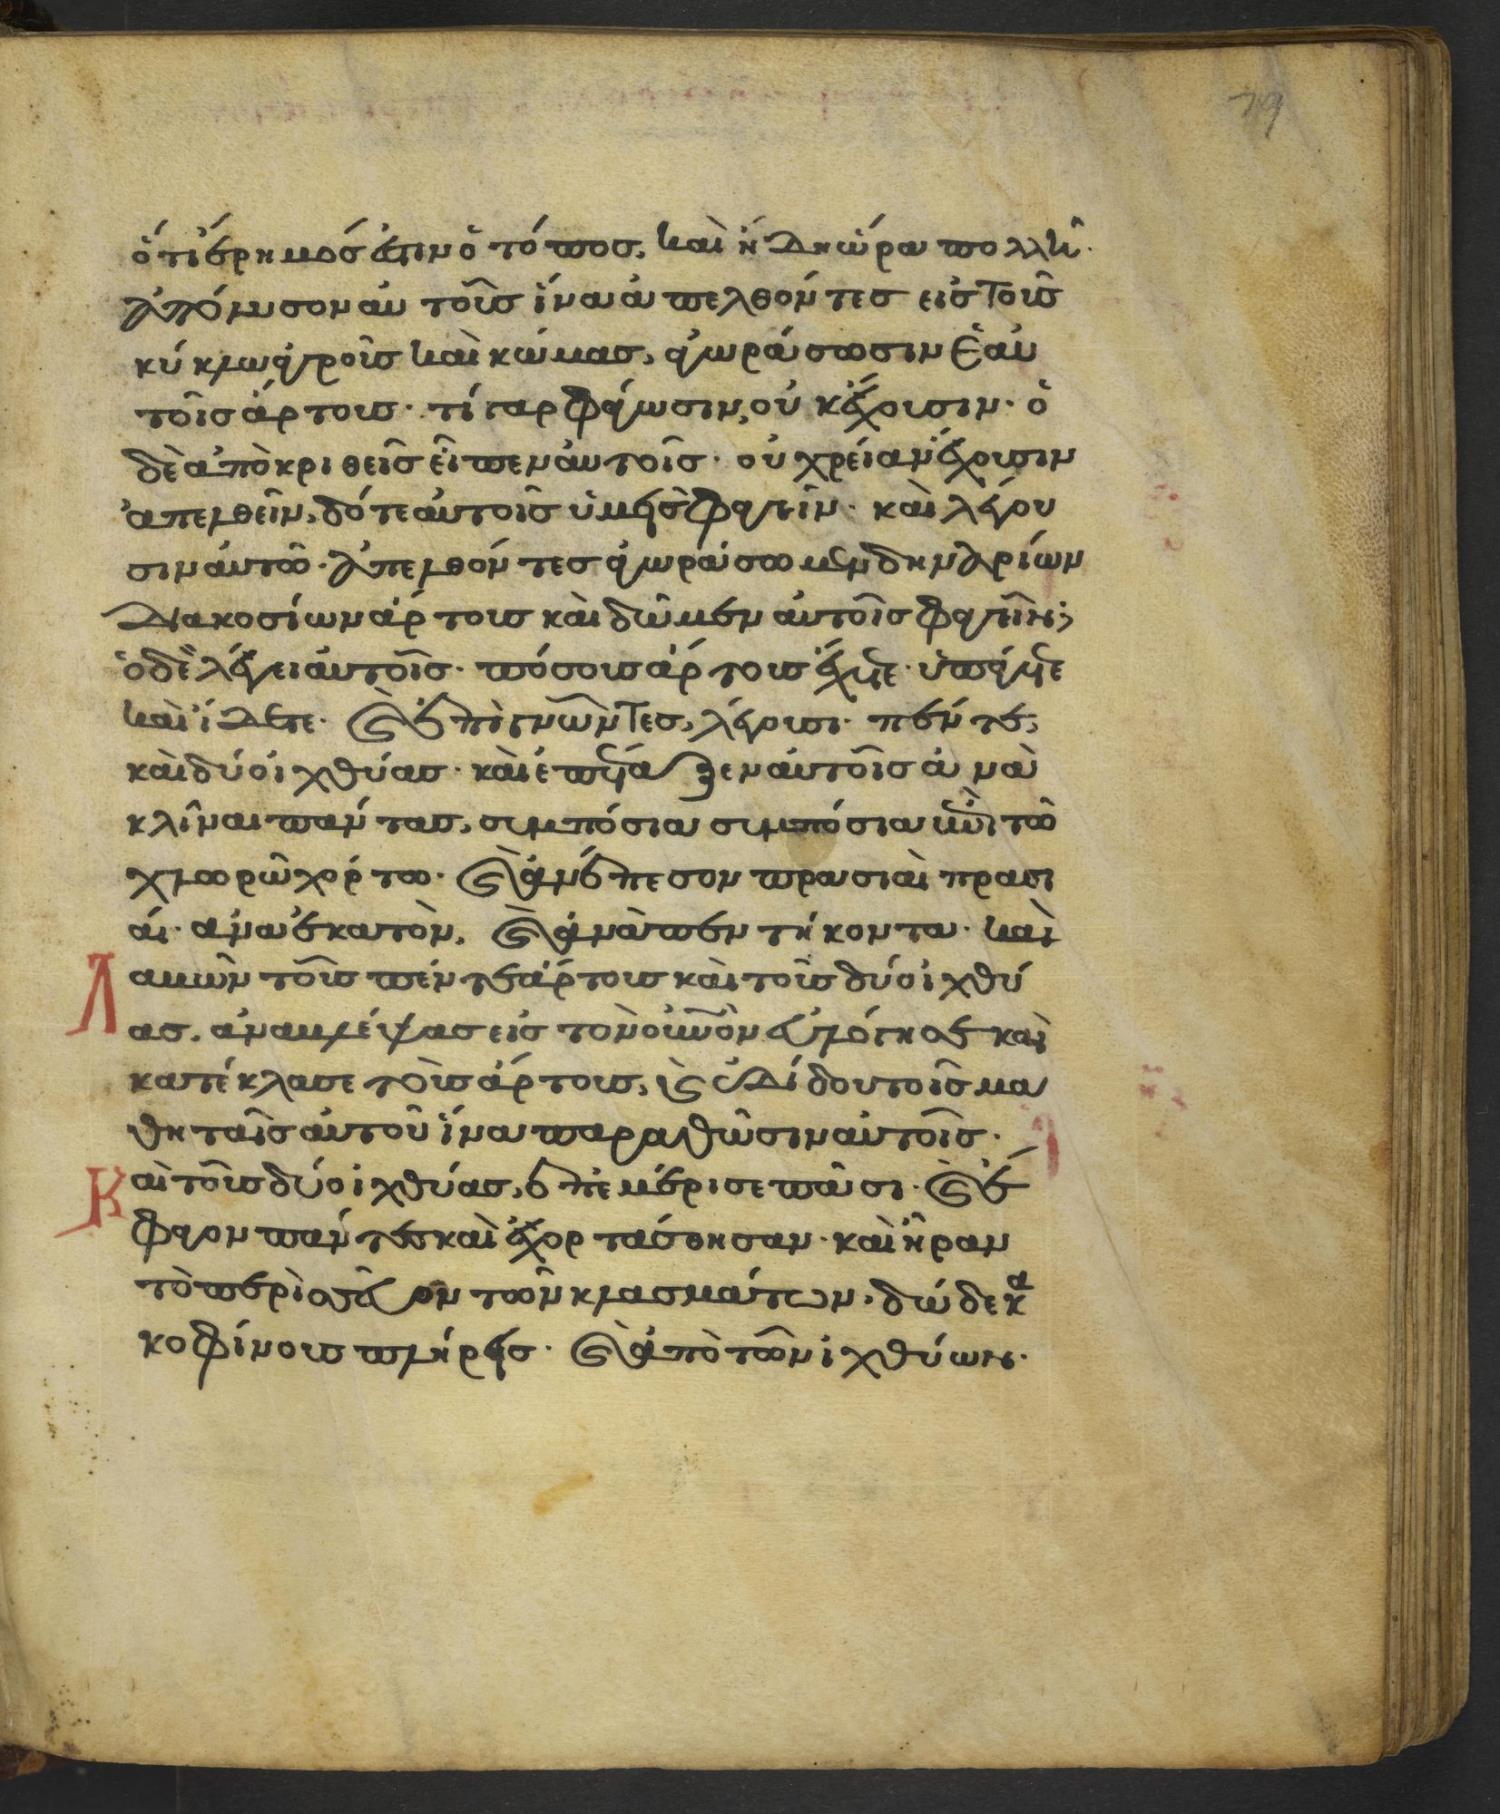 79
ὅτι ἔρημός ἐστιν ὁ τόπος, καὶ ἤδη ὥρα πολλή·
ἀπόλυσον αὐτοὺς ἵνα ἀπελθόντες εἰς τοὺς
κύκλω ἀγροὺς καὶ κώμας, ἀγωράσωσιν ἑαυ
τοῖς ἄρτους· τί γαρ φάγωσιν, οὐκ ἔχουσιν· ὁ
δὲ ἀποκριθεὶς εἶπεν αὐτοῖς· οὐ χρείαν ἔχουσιν
ἀπελθεῖν, δότε αὐτοῖς ὑμεῖς φαγεῖν· καὶ λέγου
σιν αὐτῶ· ἀπελθόντες ἀγωράσωμεν δηναρίων
διακοσίων ἄρτους καὶ δῶμεν αὐτοῖς φαγεῖν;
ὁ δὲ λέγει αὐτοῖς· πόσους ἄρτους ἔχετε· ὑπάγετε
καὶ ἴδετε· καὶ ἐπιγνῶντες, λέγουσι· πέντε,
καὶ δύο ἰχθύας· καὶ ἐπέταξεν αὐτοῖς ἀνα
κλῖναι πάντας, συμπόσια συμπόσια ἐπὶ τῶ
χλωρῶ χόρτω· καὶ ἀνέπεσον πρασιαὶ πρασι
αί· ἀνα ἑκατὸν, καὶ ἀνὰ πεντήκοντα· καὶ
Λ αβὼν τοὺς πέντε ἄρτους καὶ τοὺς δύο ἰχθύ
ας, ἀναβλέψας εἰς τὸν οὐνὸν εὐλόγησε καὶ
κατέκλασε τοὺς ἄρτους, καὶ ἐδίδου τοῖς μα
θηταῖς αὐτοῦ ἵνα παραθῶσιν αὐτοῖς·
Κ αὶ τοὺς δύο ἰχθύας, ἐμέρισε πᾶσι· καὶ ἔ
φαγον πάντες καὶ ἐχορτάσθησαν· καὶ ἦραν
τὸ περισσεῦον τῶν κλασμάτων, δώδεκα
κοφίνους πλήρεις· καὶ ἀπὸ τῶν ἰχθύων·